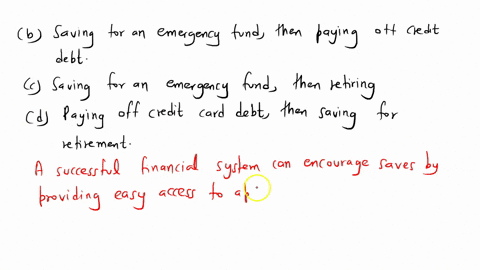 (b) Saving for an emergency fund, then paying off credit
debt.
(c) Saving for an emergency fund, then retiring
(d) Paying off credit card debt, then saving for
retirement.
A successful financial system can encourage saves by
providing easy access to